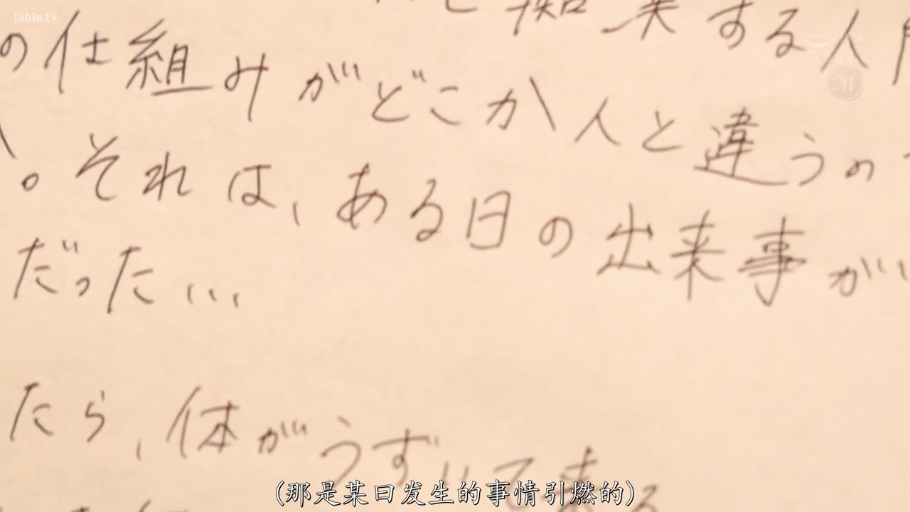 jable.tv
する人
の仕組みがどこか人と違うの
。それは、ある日の出来事が
だった...
たら、体がうずいて
(那是某日发生的事情引燃的)